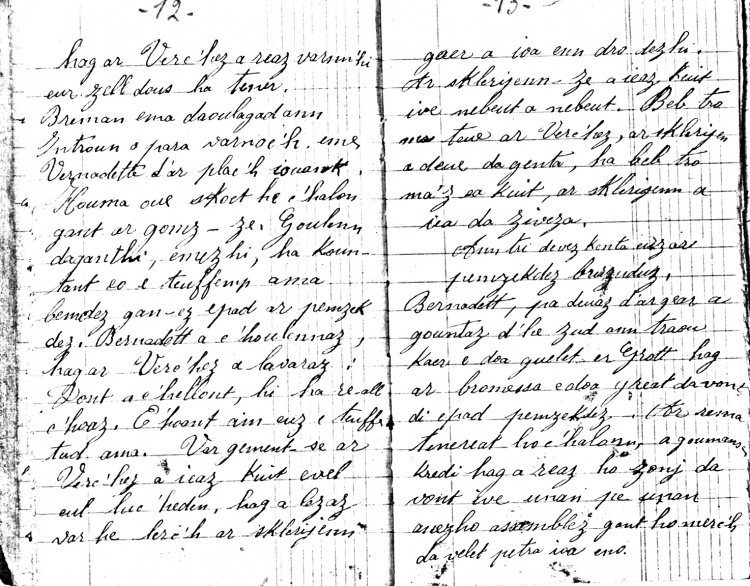 -12-
hag ar Verc'hez a reaz varnn'hi
eur zell dous ha tener.
Breman ema daoulagad ann
Introun o para varnoc'h. eme
Vernadette d'ar plac'h iouank.
Houma oue skoet he c'halon
gant ar gomz-ze. Goulenn
diganthi, emezhi, ha koun-
tant eo e teuffemp ama
bemdez gan-ez epad ar pemzek
dez. Bernadett a c'houlennaz,
hag ar Verc'hez a lavaraz :
Dont a c'hellont, hi ha re all
c'hoaz. C'hoant am euz e teuffe
tud ama. Var gement-se ar
Verc'hez a ieaz kuit evel
eul luc'heden, hag a lezaz
var he lerc'h ar sklerijenn
-13-
gaer a ioa enn dro dezhi.
Ar sklerijenn-ze a ieaz kuit
ive nebeut a nebeut. Beb tro
ma teue ar Verc'hez, ar sklerijen
a deue da genta, ha beb tro
ma'z ea kuit, ar sklerijenn a
iea da ziveza.
Ann hi devez kenta euz ar
pemzekdez burzuduz,
Bernadett, pa deuaz d'ar gear a
gountaz d'he zud ann traou
kaer e doa guelet er Grott hag
ar bromessa e doa great da vont
di epad pemzekdez. Ar re-ma
tenereat ho c'halonn, a goumans
kredi hag a reaz ho zonj da
vont ive unan pe unan
anezho assemblez gant ho merc'h
da velet petra ioa eno.